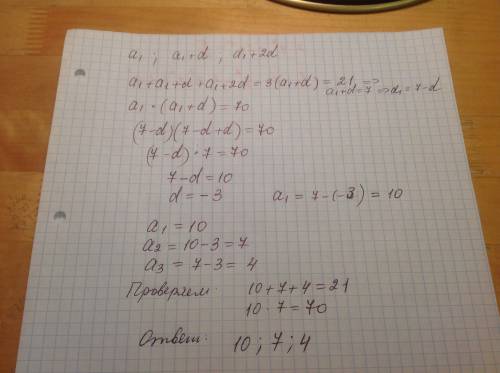 a₁ ; a₁+d , a₁+2d
a₁+a₁+d+a₁+2d = 3(a₁+d) = 21, =>
a₁+d=7 => a₁=7-d
a₁ · (a₁+d) = 70
(7-d)(7-d+d) = 70
(7-d) · 7 = 70
7-d = 10
d = -3 a₁ = 7-(-3) = 10
a₁ = 10
a₂ = 10-3 = 7
a₃ = 7-3 = 4
Проверяем: 10+7+4=21
10 · 7 = 70
Ответ: 10 ; 7 ; 4